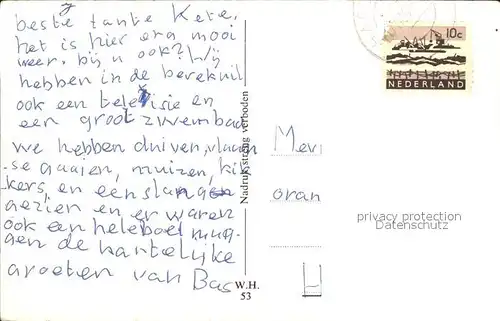 beste tante Kete.
het is hier erg mooi
weer. bij u ook? Wij
hebben in de berekuil
ook een televisie en
een groot zwembad
we hebben duiven, vlaam
-se gaaien, muizen, kik
kers, en een slang
gezien en er waren
ook een heleboel mug-
gen de hartelijke
groeten van Bas
Nadruk streng verboden
W.H.
53
10c
NEDERLAND
Mevr
oran
H
privacy protection
Datenschutz